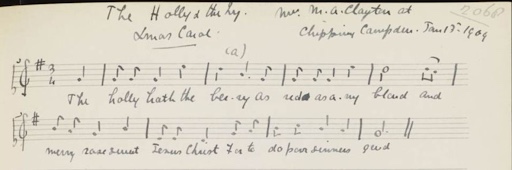 The Holly & the Ivy. Mrs. M. A. Clayton at 2068
Xmas Carol. Chipping Campden. Jan 13th. 1909
(a)
The holly hath the ber-ry as red as a-ny blood and
merry rose sweet Jesus Christ For to do poor sinners good